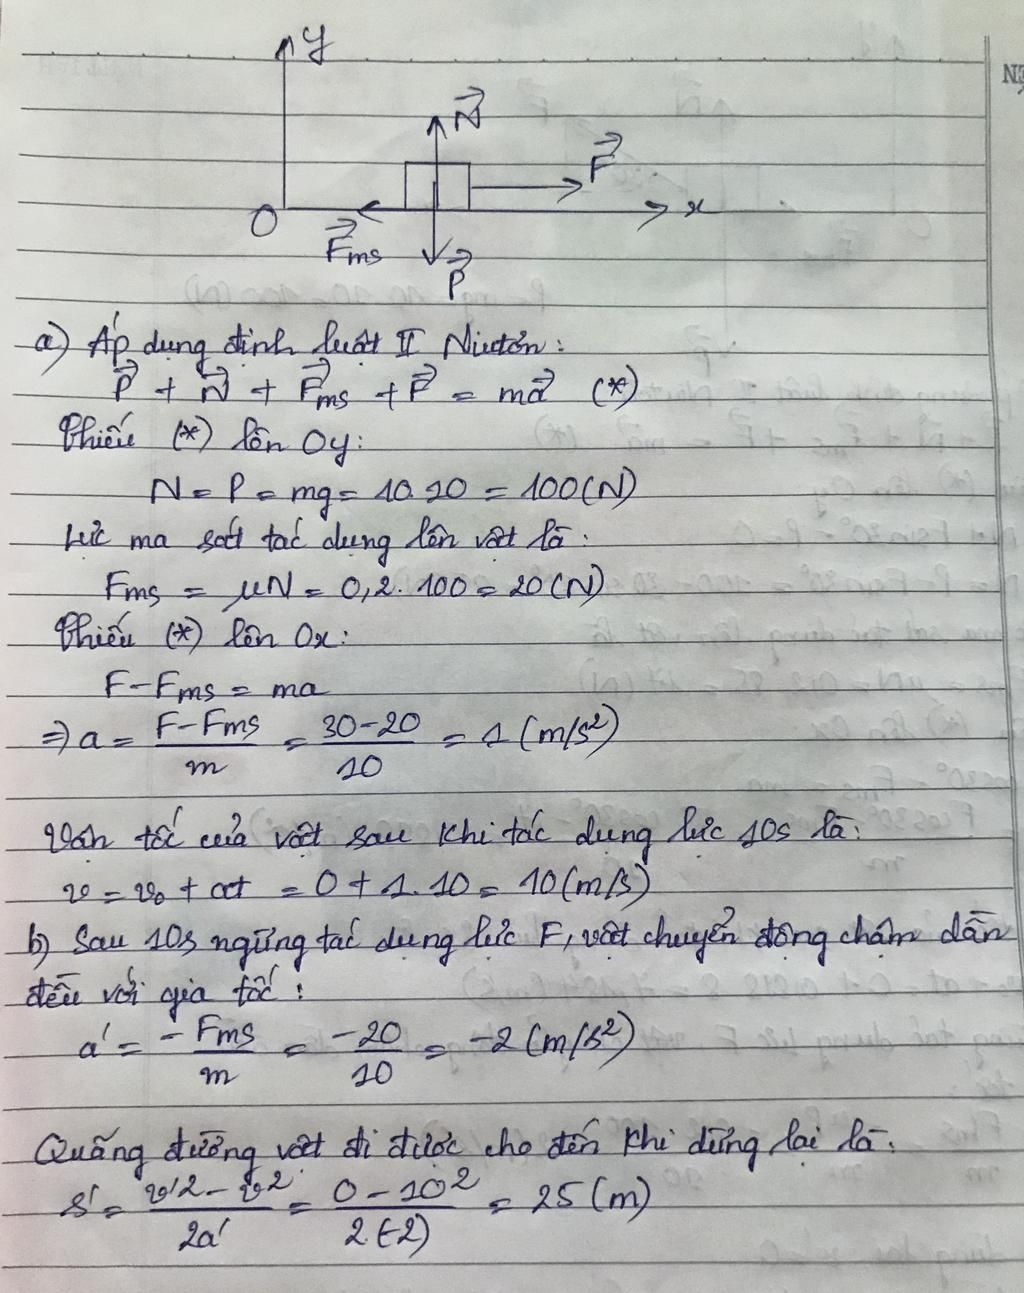 y
N⃗
F⃗
O
x
F⃗ms
P⃗
a) Áp dụng định luật II Niutơn:
P⃗ + N⃗ + F⃗ms + F⃗ = ma⃗ (*)
Chiếu (*) lên Oy:
N = P = mg = 10.10 = 100(N)
Lực ma sát tác dụng lên vật là:
Fms = μN = 0,2.100 = 20(N)
Chiếu (*) lên Ox:
F - Fms = ma
⇒ a = (F - Fms)/m = (30 - 20)/10 = 1 (m/s²)
Vận tốc của vật sau khi tác dụng lực 10s là:
v = v₀ + at = 0 + 1.10 = 10(m/s)
b) Sau 10s ngừng tác dụng lực F, vật chuyển động chậm dần
đều với gia tốc:
a' = -Fms/m = -20/10 = -2 (m/s²)
Quãng đường vật đi được cho đến khi dừng lại là:
s' = (v'² - v²)/2a' = (0 - 10²)/2(-2) = 25 (m)